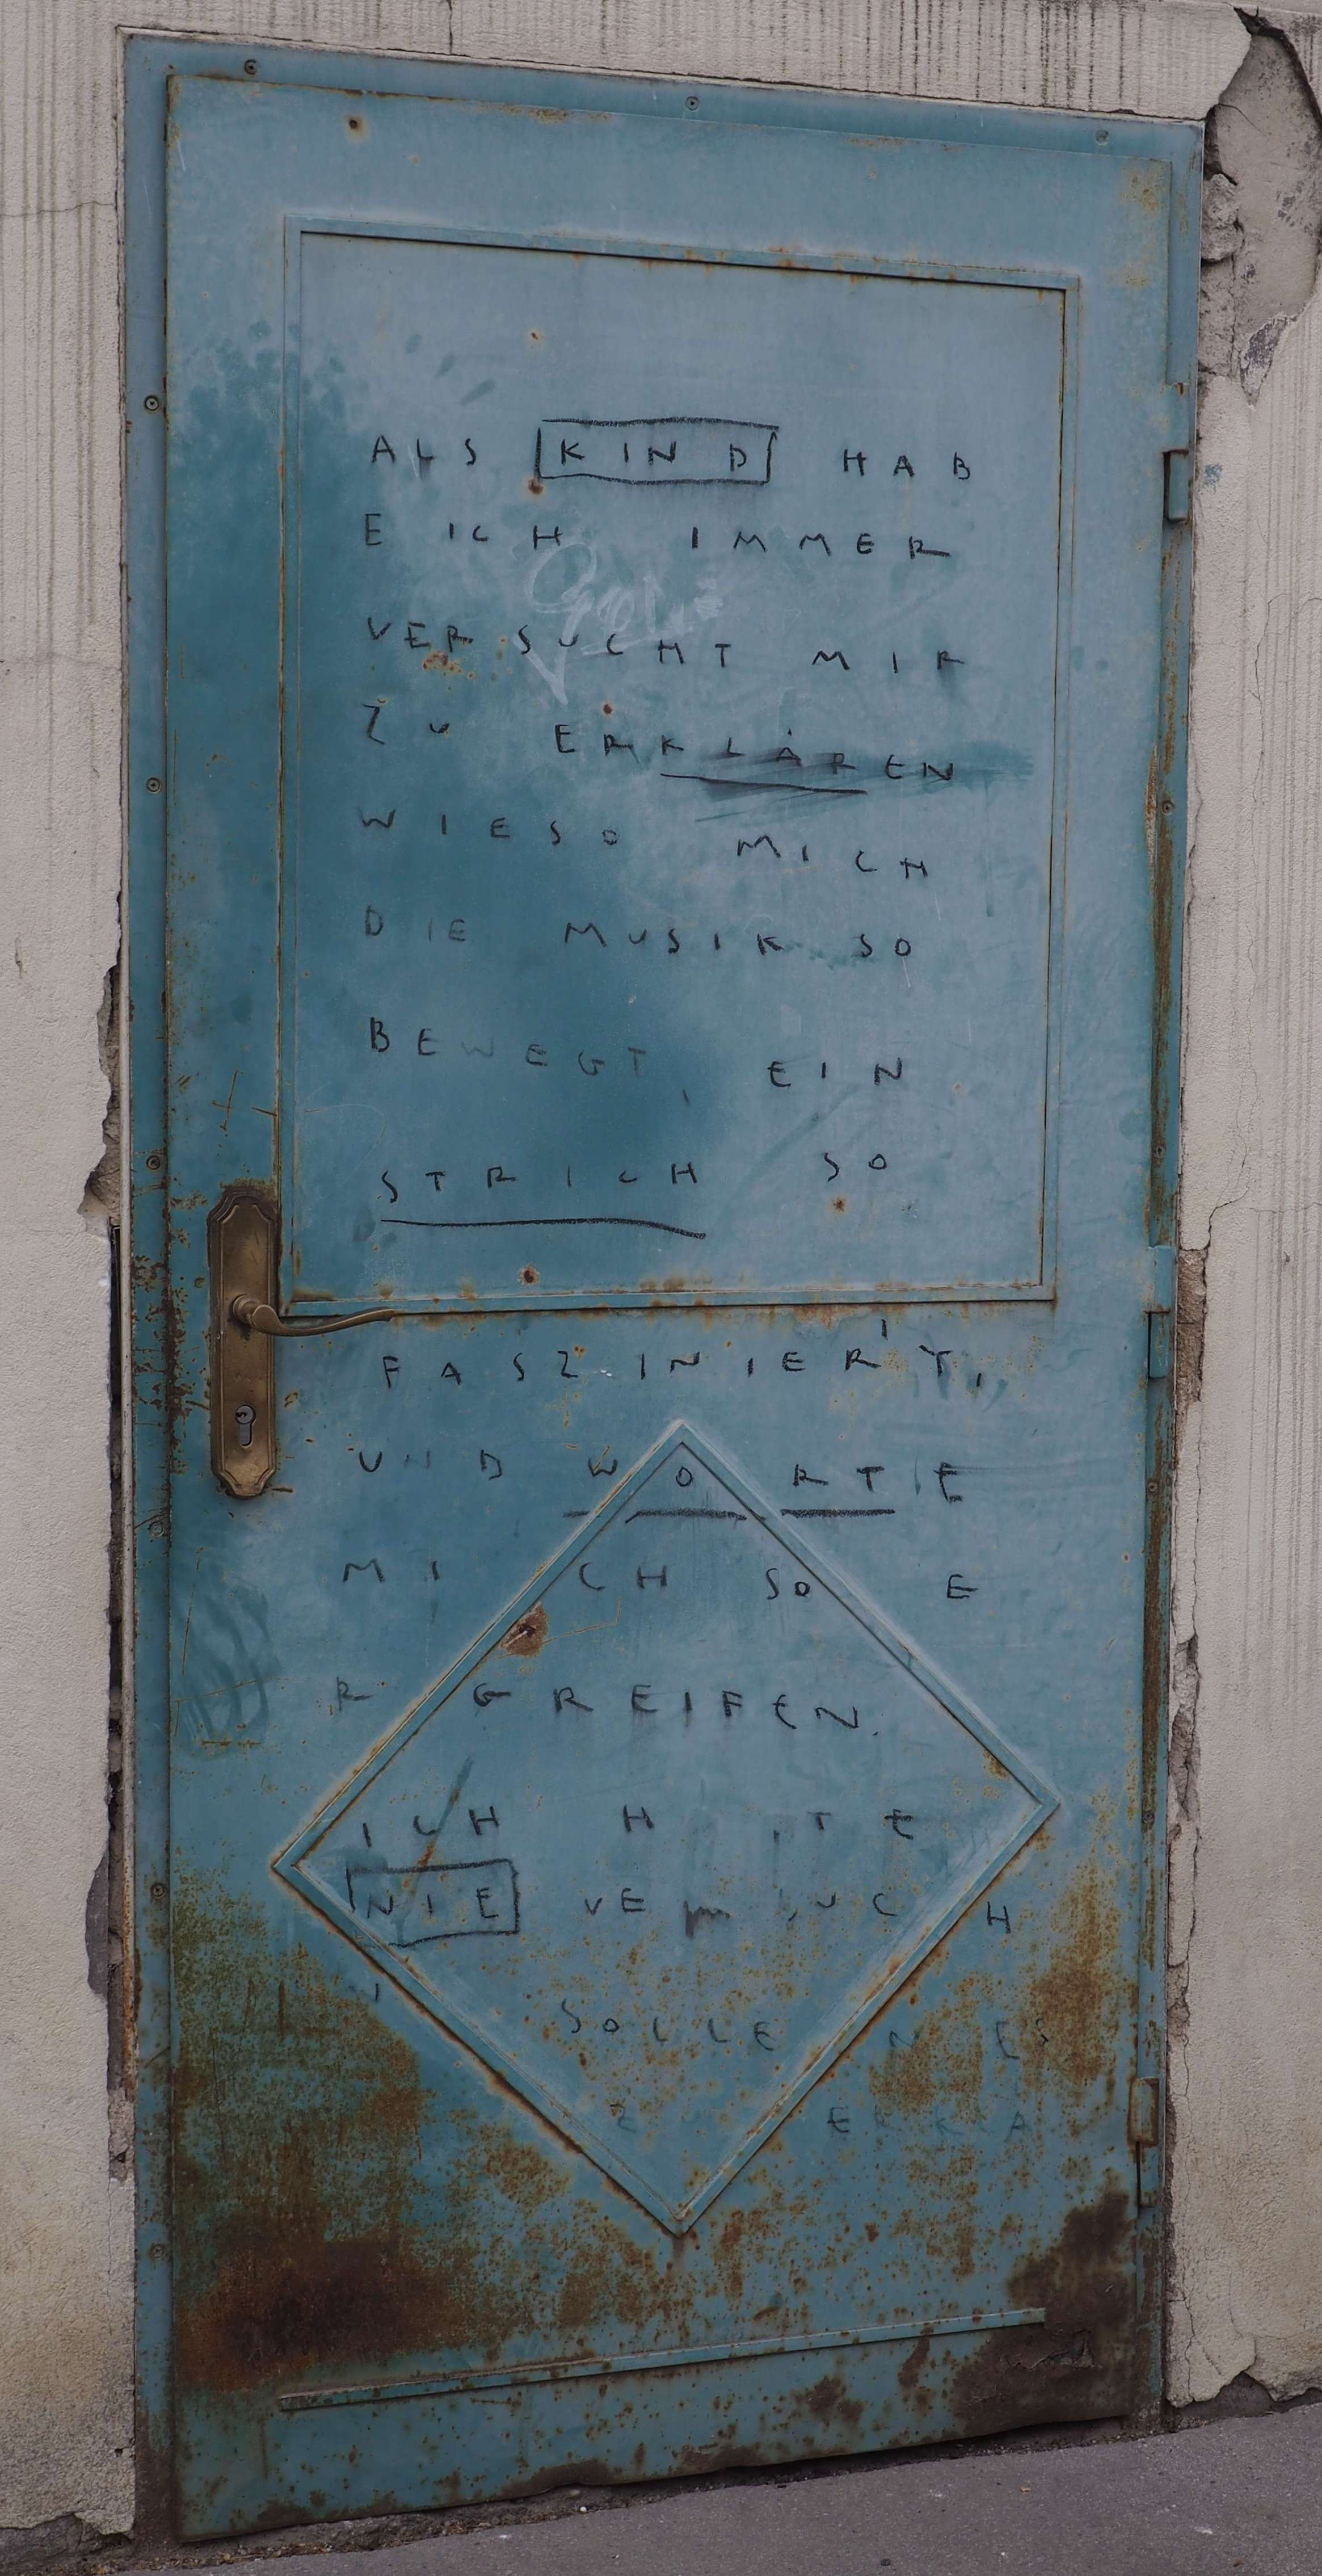 ALS KIND HAB
E ICH IMMER
VERSUCHT MIR
ZU ERKLÄREN
WIESO MICH
DIE MUSIK SO
BEWEGT, EIN
STRICH SO
FASZINIERT,
UND WORTE
MICH SO E
RGREIFEN.
ICH
NIE
SOLLEN ES